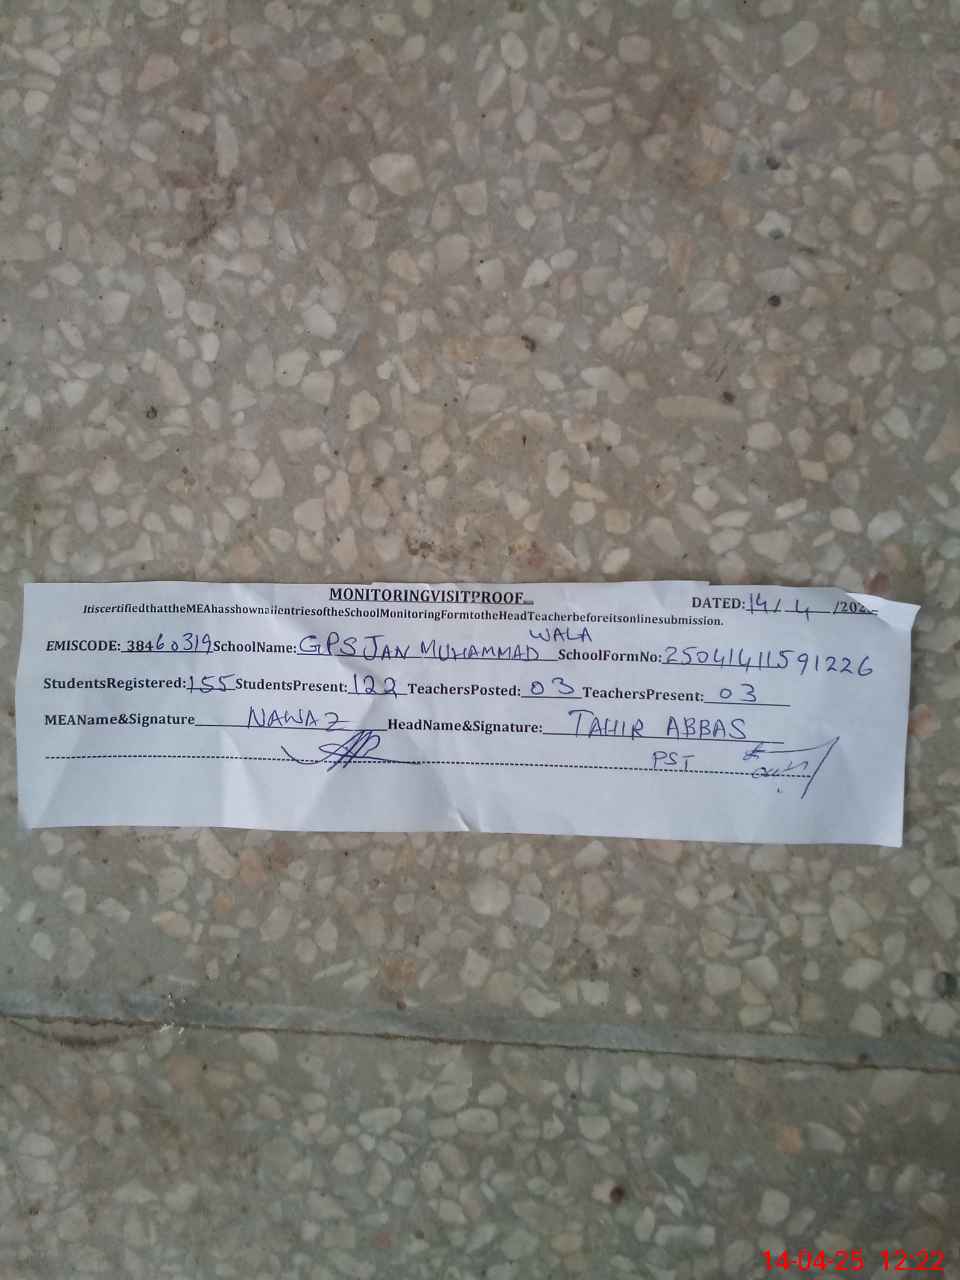 MONITORINGVISITPROOF
DATED:14/4/202
ItiscertifiedthattheMEAhasshownallentriesoftheSchoolMonitoringFormtotheHeadTeacherbeforeitsonlinesubmission.
EMISCODE: 38460319SchoolName:GPS JAN MUHAMMAD WALA SchoolFormNo:25041411591226
StudentsRegistered:155StudentsPresent:122TeachersPosted:03TeachersPresent:03
MEAName&Signature NAWAZ HeadName&Signature: TAHIR ABBAS
PST
14-04-25 12:22